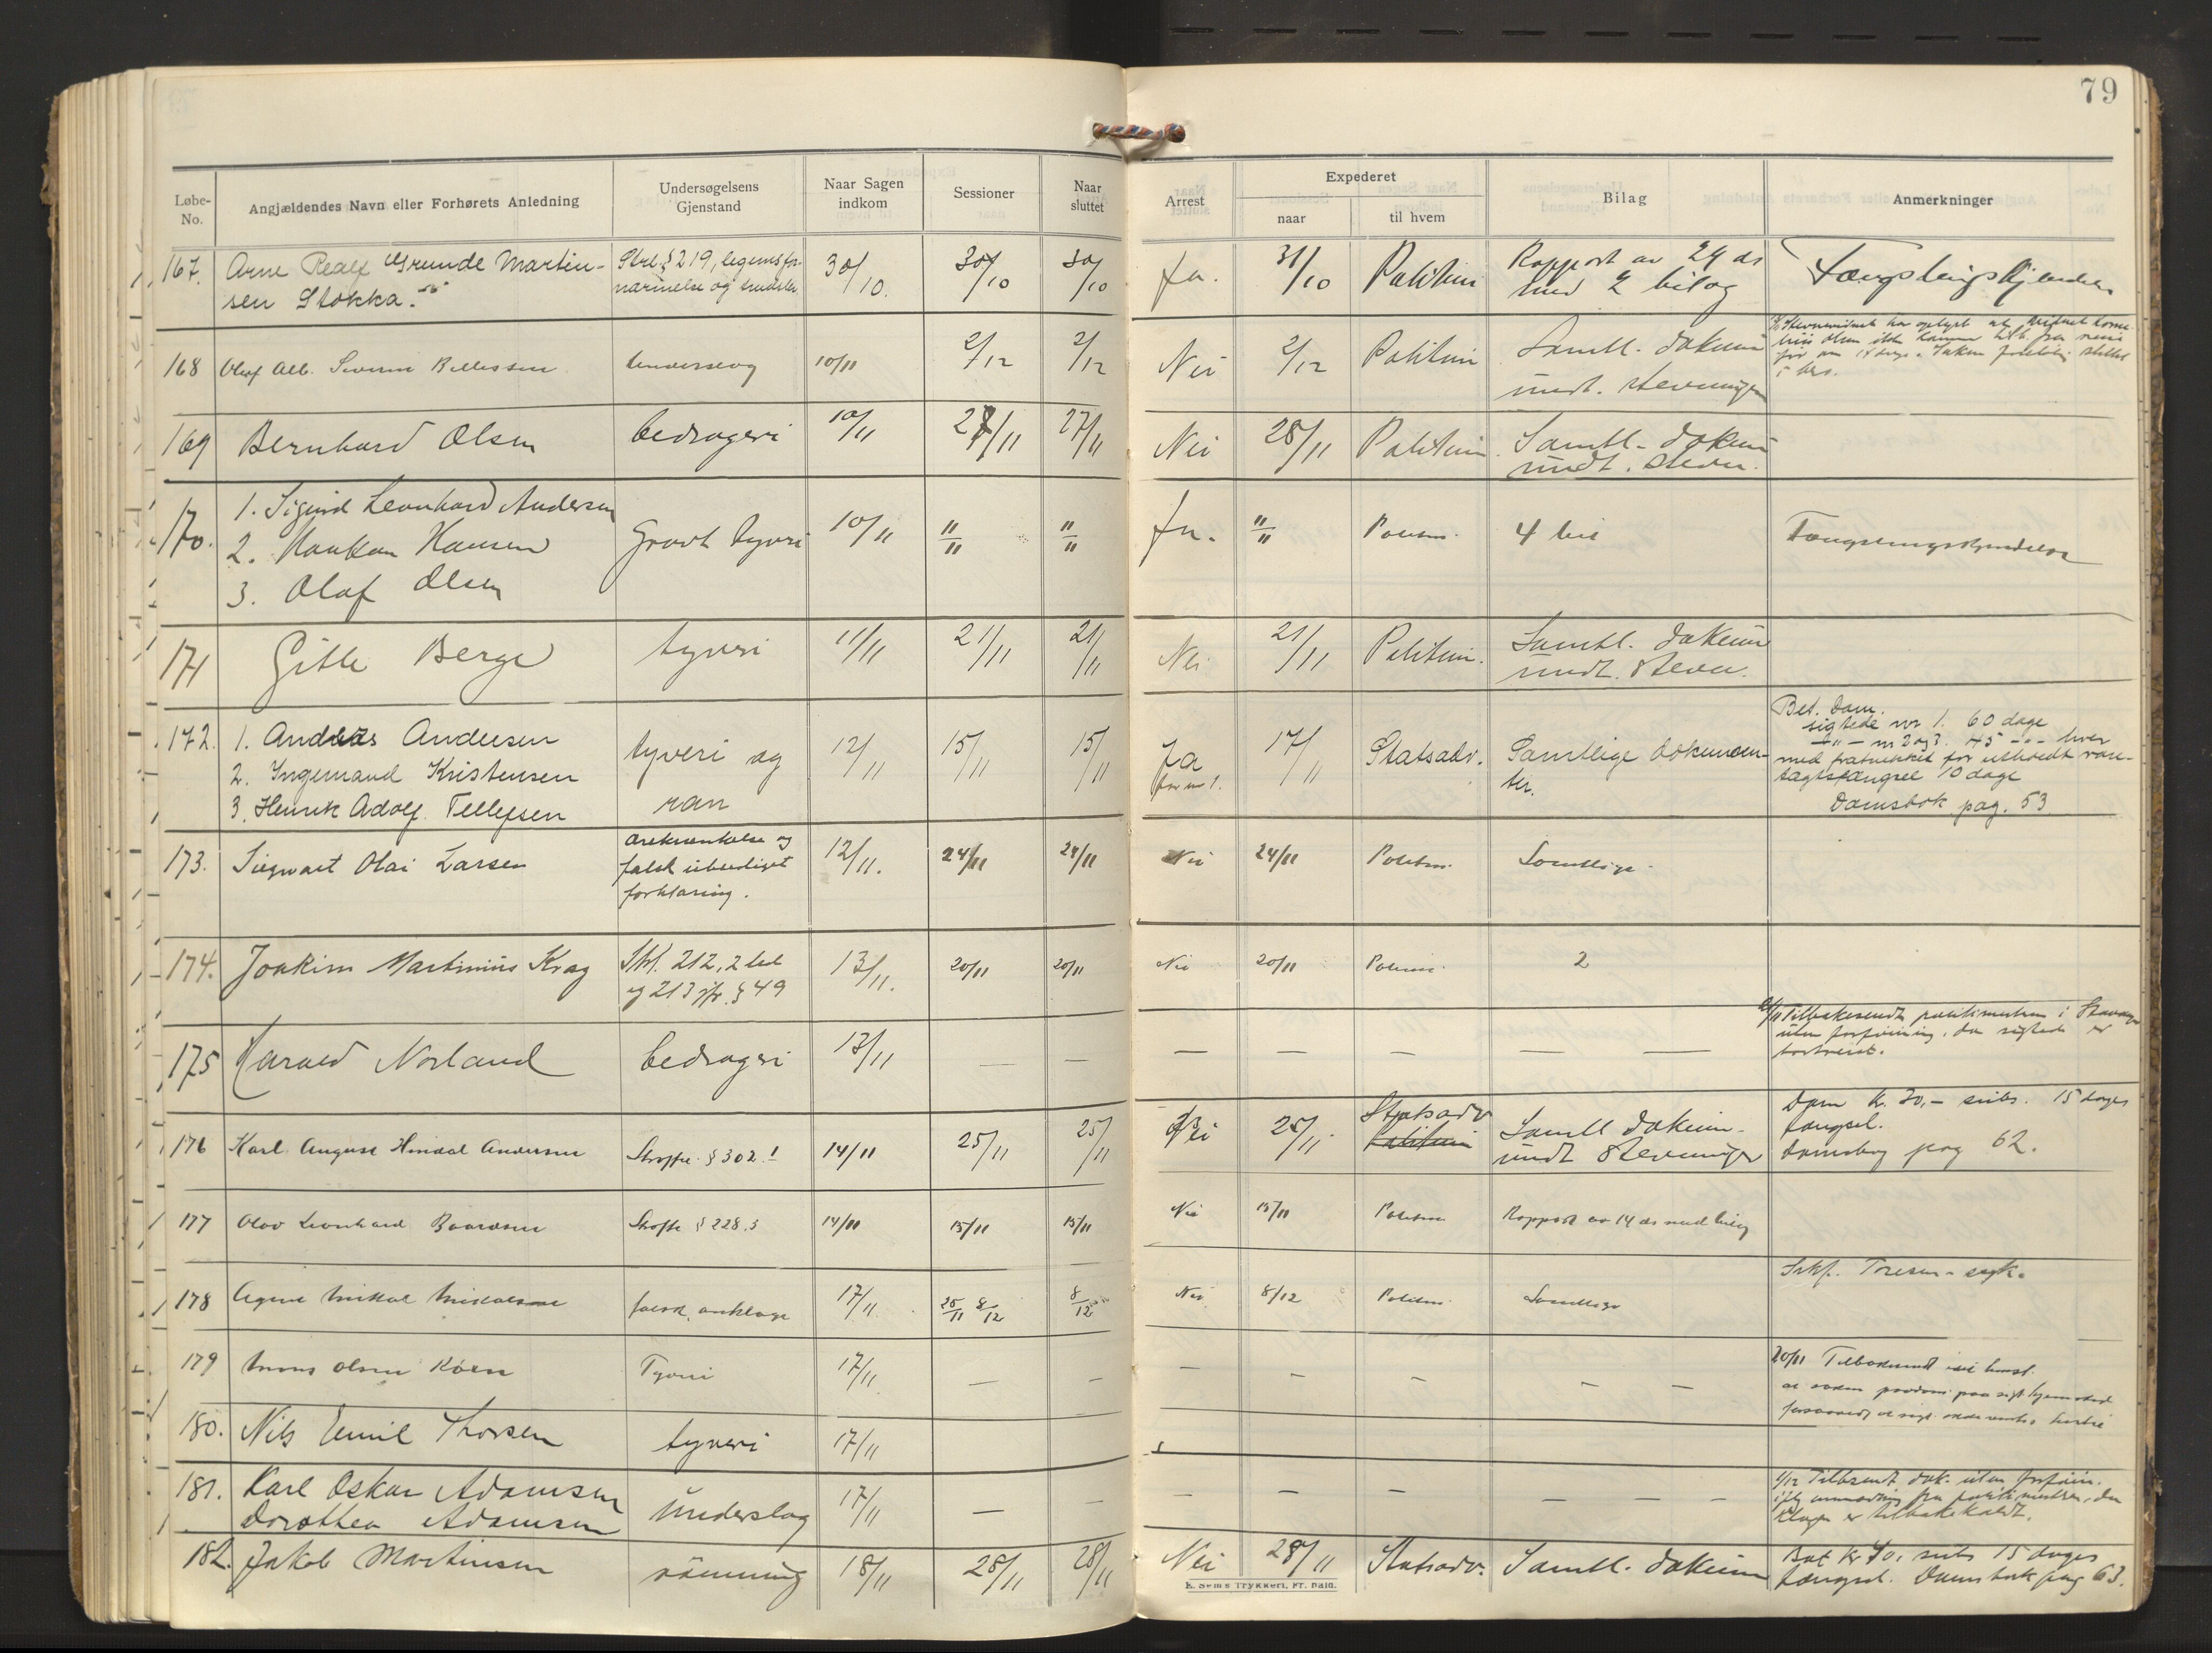 79
Løbe-No.
Angjældendes Navn eller Forhørets Anledning
Undersøgelsens Gjenstand
Naar Sagen indkom
Sessioner
Naar sluttet
Arrest
Expederet
naar
til hvem
Bilag
Anmerkninger
167. Arne Realf Grunde Martin- Strl. § 219, legemsfor- 30/10. 30/10 30/10 Ja. 31/10 Politim Rapport av 29 ds Fængslingskjendelse
sen Stokka. nærmelse og trusler med 2 bilog
168 Olaf Alb. Severin Underslag 10/11 2/12 2/12 Nei 2/12 Politim Samtl. dokum
undt. stevninger
169 Bernhard Olsen bedrageri 10/11 27/11 27/11 Nei 28/11 Politim Samtl. dokum
undt. stevn.
170. 1. Sigurd Leonhard Andersen Grovt tyveri 10/11 11/11 11/11 Ja. 11/11 Politim. 4 bil Fængslingskjendelse
2. Haakon Hansen
3. Olaf Olsen
171 Gitle Berge tyveri 11/11 21/11 21/11 Nei 21/11 Politim. Samtl. dokum
undt. stevn.
Bet. dom.
172. 1. Anders Andersen tyveri og 12/11 15/11 15/11 Ja 17/11 Statsadv. Samtlige dokumen- sigtede nr 1. 60 dage
2. Ingemand Kristensen ran for nr 1. ter. — " — nr 2 og 3. 45 - " - hver
3. Henrik Adolf Tellefsen med fratrekket for utholdt vare-
tægtsfængsel 10 dage
Domsbok pag. 53
173. Sigwart Olai Larsen ærekrænkelse og 12/11. 24/11 24/11 Nei 24/11 Politm. Samtlige
falsk ubeediget
forklaring.
174. Joakim Martinius Krag Strl. 212, 2 led 13/11. 20/11 20/11 Nei 20/11 Politm. 2
og 213 jfr. § 49
175 Harald Norland bedrageri 13/11 — — — — — — — Tilbakesendt politimestren i Stavanger
uten forføining, da sigtede er
bortreist.
176 Karl August Andersen Straffel. § 302.1 14/11 25/11 25/11 Nei 25/11 Statsadv. Samtl dokum- Dom kr. 30,- subs. 15 dages
Politim undt stevninger fængsel.
domsbog pag 62.
177 Olav Leonhard Baardsen Straffe § 228.3 14/11 15/11 15/11 Nei 15/11 Politm Rapport av 14 ds med bilag
178 Mikal falsk anklage 17/11. 25/11 8/12 8/12 Nei 8/12 Politm. Samtlige Srkf. Toresen - syk.
179 Olsen Tyveri 17/11 — — — — — — — 20/11 Tilbakesendt
180. Nils Emil Thorsen tyveri 17/11
181. Karl Oskar Adamsen Underslag 17/11 — — — — — — — 1/12 Tilbsendt dok. uten forføin.
Dorothea Adamsen ifly anmodning fra politimestren, da
klagen er tilbakekaldt.
182. Jakob Martinsen rømning 18/11 28/11 28/11 Nei 28/11 Statsadv. Samtl. dokum Bot kr 40, subs 15 dages
fængsel. Domsbok pag 63.
E. Sems Trykkeri, Fr. hald.